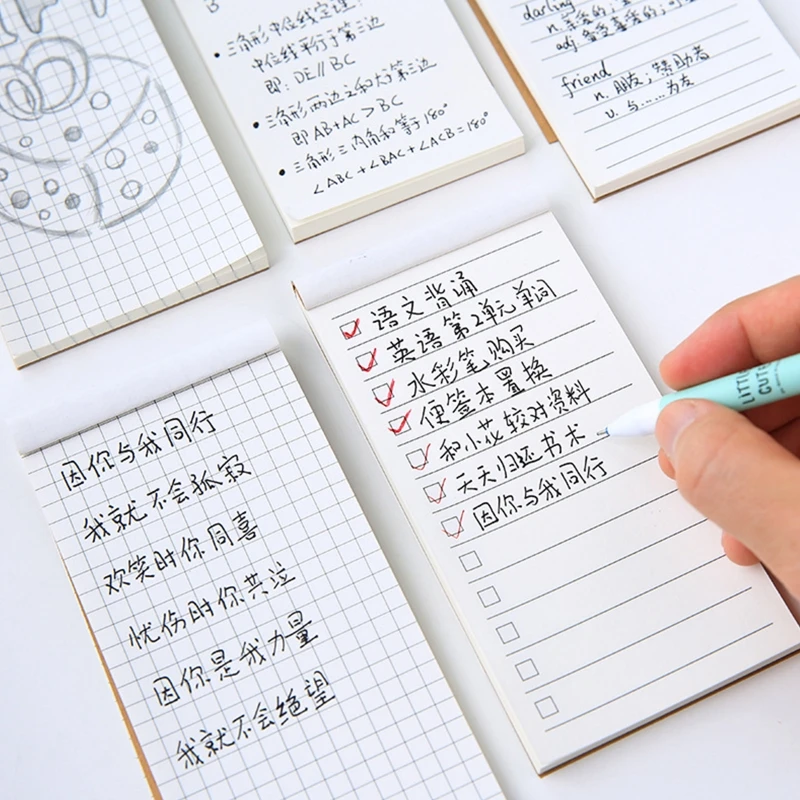 B
• 三角形中位线定理:
中位线平行于第三边
即: DE//BC
• 三角形两边之和大于第三边
即 AB+AC>BC
• 三角形三内角和等于180°
∠ABC+∠BAC+∠ACB=180°
darling
friend
n. 朋友；赞助者
v. 与……为友
语文背诵
英语第2单元单词
水彩笔购买
便签本置换
和小花较对资料
天天归还书术
因你与我同行
因你与我同行
我就不会孤寂
欢笑时你同喜
忧伤时你共泣
因你是我力量
我就不会绝望
LITTLE
CUTE